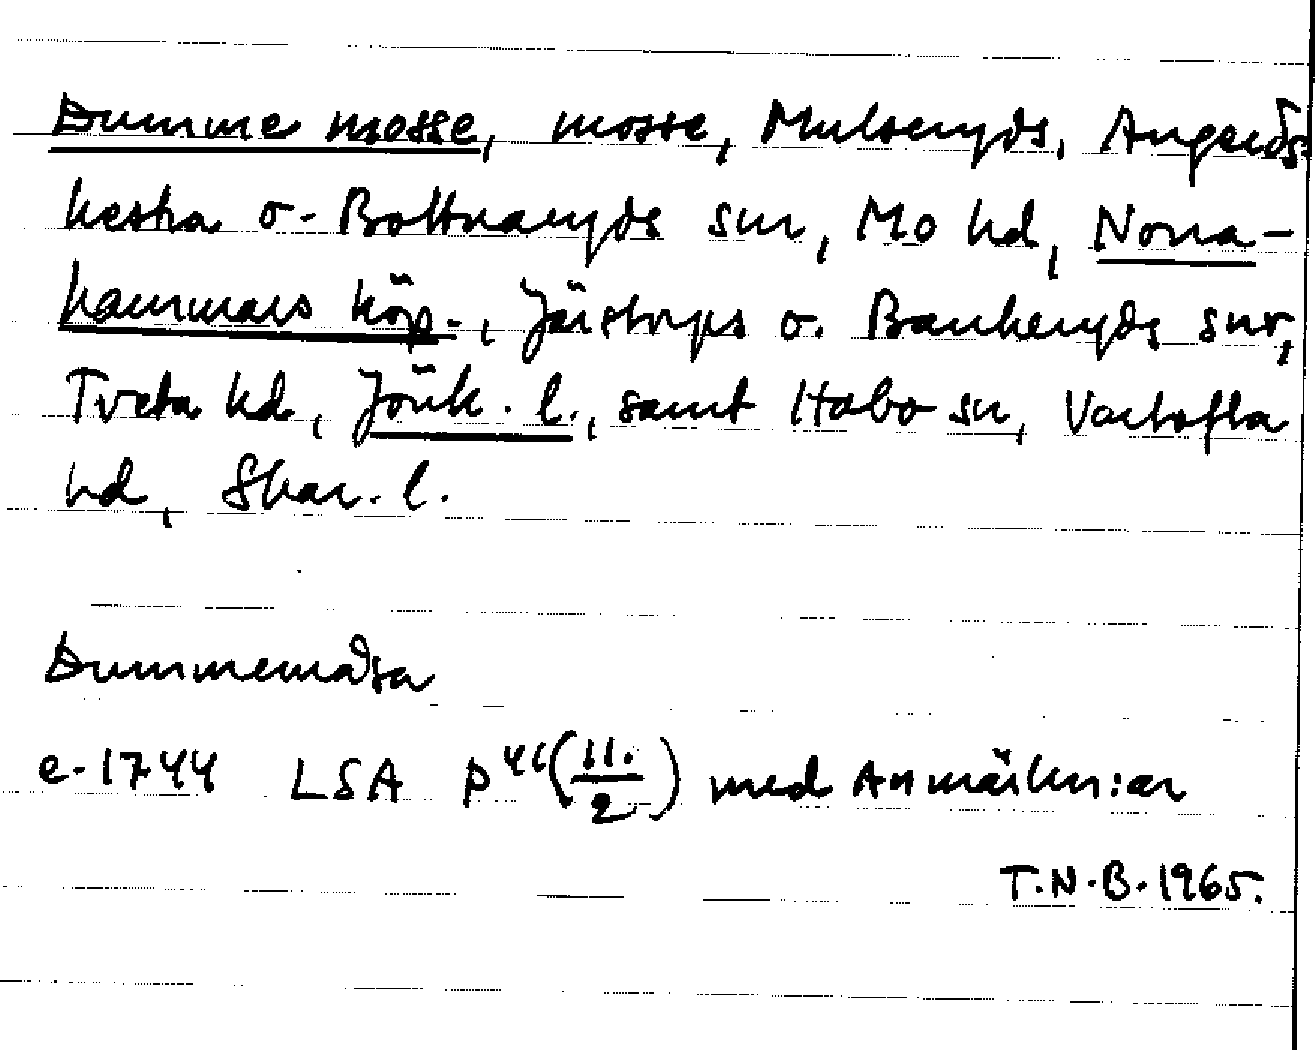 Dumme mosse, mosse, Mulseryds, Angerds-
hestra o. Bottnaryds snr, Mo hd, Norra-
hammars köp., Järstorps o. Bankeryds snr,
Tveta hd, Jönk. l., samt Habo sn, Vartofta
hd, Skar. l.
Dummemåsa
e. 1744 LSA P 46 (11./2) med Anmärkn:ar
T.N.B. 1965.